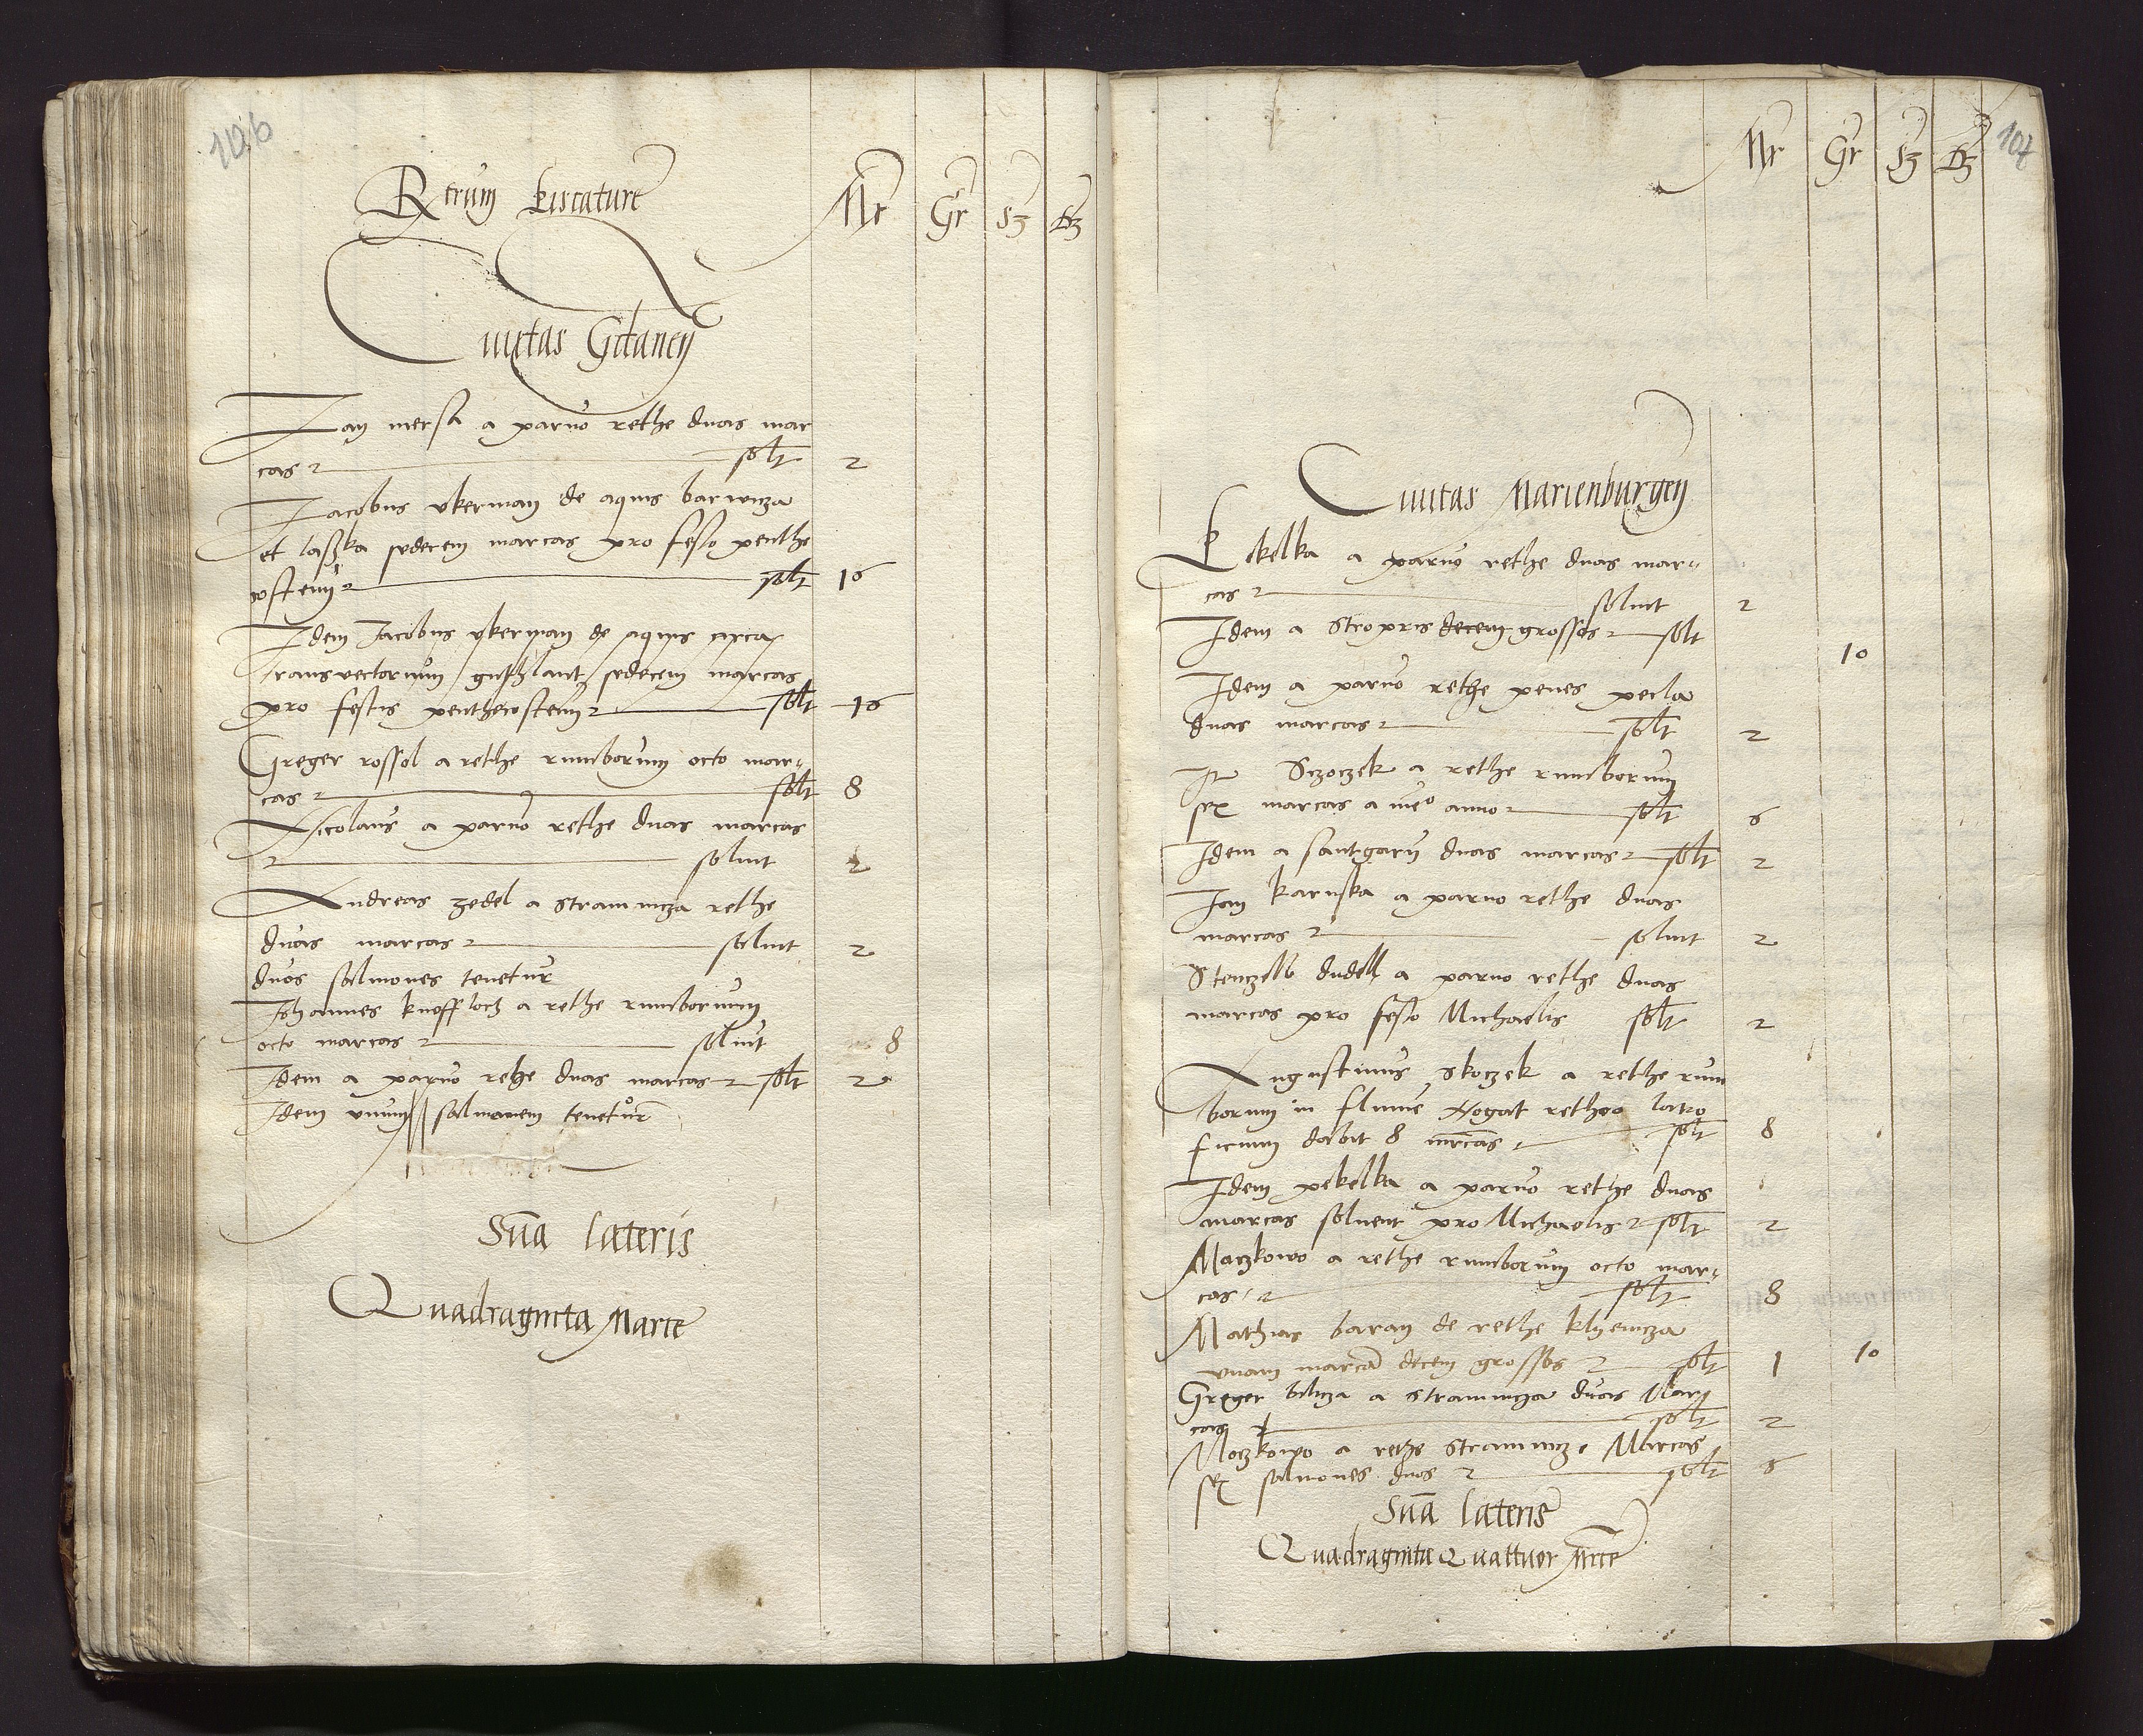 106
Mr Gr Sz
Retrum piscature
Civitas Gdanen
Jan mersa a parvo rethe duas mar
cas solt 2
Jacobus ukerman de aquis barwicza
et laszka sedecem marcas pro festo penthe
costem solt 16
Idem Jacobus ukerman de aquis circa
transvectorium sedecem marcas
pro festis penthecostem solt 16
Greger rossol a rethe rumborum octo mar
cas solt 8
Nicolaus a parvo rethe duas marcas
solvit 2
Andreas zedel a stramnicza rethe
duas marcas solvit 2
duos salmones tenetur
Johannes knoffloch a rethe rumborum
octo marcas solvit 8
Idem a parvo rethe duas marcas solt 2
Idem unum salmonem tenetur
Suma lateris
Quadraginta Marce
107
Mr Gr Sz
Civitas Marienburgen
Pekelka a parvo rethe duas mar
cas solvit 2
Idem a stropris decem grossos solt 10
Idem a parvo rethe penes pecla
duas marcas solt 2
Sczoczek a rethe rumborum
sex marcas a anno solt 6
Idem a duas marcas solt 2
Jan karuska a parvo rethe duas
marcas solvit 2
Stenczell dudell a parvo rethe duas
marcas pro festo Michaelis solt 2
Augustinus skoczek a rethe rum
borum in flumine Nogat
dabit 8 mrcas solt 8
Idem pekelka a parvo rethe duas
marcas solvent pro Michaelis solt 2
Maczkowo a rethe rumborum octo mar
cas solt 8
Mathias baran de rethe klyenicza
unam marcam decem grossos solt 1 10
Greger bilicza a stramnicza duas Mar
cas solt 2
Moczkowo a rethe stramnicze Marcas
sex salmones duos solt 6
Suma lateris
Quadraginta Quattuor Mrce